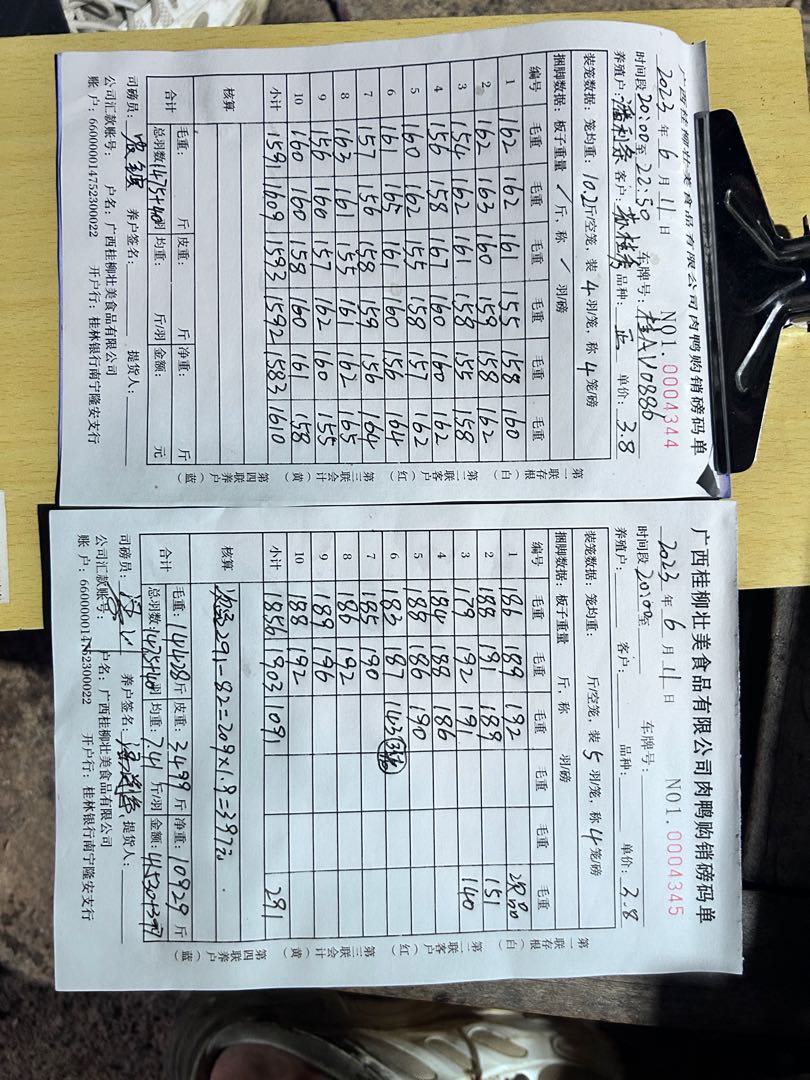 广西桂柳壮美食品有限公司肉鸭购销磅码单
2023 年 6 月 11 日 NO1. 0004344
时间段 20:00至 22:50 车牌号: 桂AV0886
养殖户: 客户: 品种: 单价: 3.8
装笼数据: 笼均重: 10.2 斤/空笼, 装 4 羽/笼, 称 4 笼/磅
捆脚数据: 板子重量 / 斤, 称 / 羽/磅
编号 毛重 毛重 毛重 毛重 毛重 毛重
1 162 162 161 155 158 160
2 162 163 160 159 158 162
3 154 162 161 158 155 158
4 156 158 167 160 160 162
5 160 162 155 158 157 162
6 161 165 161 160 156 164
7 157 156 158 159 156 164
8 163 161 155 161 162 165
9 156 160 157 162 160 155
10 160 160 158 160 161 158
小计 1591 1609 1593 1592 1583 1610
核算
合计 毛重: 斤 皮重: 斤 净重: 斤
总羽数 1475+40 羽 均重: 斤/羽 金额: 元
司磅员: 养户签名: 提货人:
公司汇款账号: 户名: 广西桂柳壮美食品有限公司
账 户: 660000014752300022 开户行: 桂林银行南宁隆安支行
第一联存根(白) 第二联客户(红) 第三联会计(黄) 第四联养户(蓝)
广西桂柳壮美食品有限公司肉鸭购销磅码单
2023 年 6 月 11 日 NO1. 0004345
时间段 20:00至 车牌号:
养殖户: 客户: 品种: 单价: 3.8
装笼数据: 笼均重: 斤/空笼, 装 5 羽/笼, 称 4 笼/磅
捆脚数据: 板子重量 斤, 称 羽/磅
编号 毛重 毛重 毛重 毛重 毛重
1 186 189 192 次品
2 188 191 189 151
3 179 192 191 140
4 184 188 186
5 188 186 190
6 183 187 143
7 185 190
8 186 192
9 189 196
10 188 192
小计 1856 1903 1091 291
核算 291-82=209×1.9=397元
合计 毛重: 14428 斤 皮重: 3499 斤 净重: 10929 斤
总羽数 1475+40 羽 均重: 7.41 斤/羽 金额:
司磅员: 养户签名: 提货人:
公司汇款账号: 户名: 广西桂柳壮美食品有限公司
账 户: 660000014752300022 开户行: 桂林银行南宁隆安支行
第一联存根(白) 第二联客户(红) 第三联会计(黄) 第四联养户(蓝)